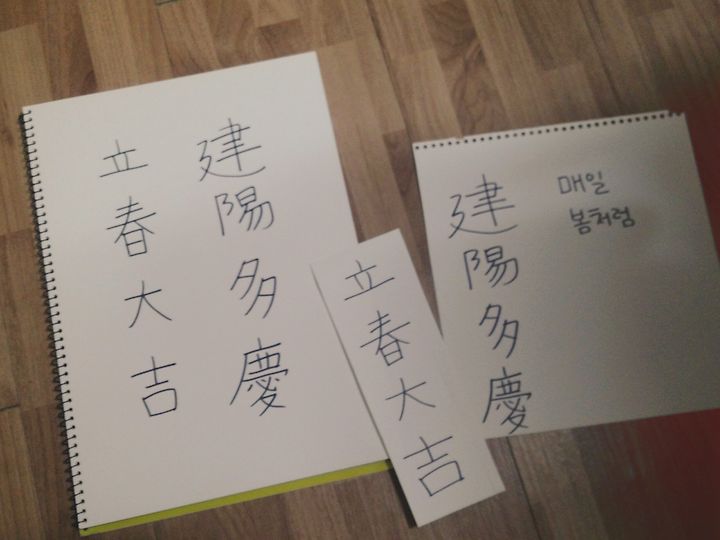 立春大吉
建陽多慶
立春大吉
建陽多慶
매일
봄처럼